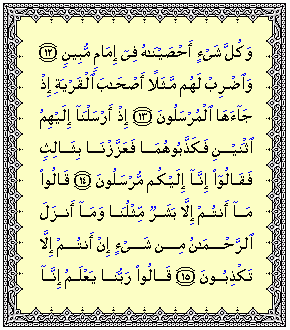 وَكُلَّ شَىْءٍ أَحْصَيْنَٰهُ فِىٓ إِمَامٍ مُّبِينٍ ﴿١٢﴾
وَٱضْرِبْ لَهُم مَّثَلًا أَصْحَٰبَ ٱلْقَرْيَةِ إِذْ
جَآءَهَا ٱلْمُرْسَلُونَ ﴿١٣﴾ إِذْ أَرْسَلْنَآ إِلَيْهِمُ
ٱثْنَيْنِ فَكَذَّبُوهُمَا فَعَزَّزْنَا بِثَالِثٍ
فَقَالُوٓا۟ إِنَّآ إِلَيْكُم مُّرْسَلُونَ ﴿١٤﴾ قَالُوا۟
مَآ أَنتُمْ إِلَّا بَشَرٌ مِّثْلُنَا وَمَآ أَنزَلَ
ٱلرَّحْمَٰنُ مِن شَىْءٍ إِنْ أَنتُمْ إِلَّا
تَكْذِبُونَ ﴿١٥﴾ قَالُوا۟ رَبُّنَا يَعْلَمُ إِنَّآ